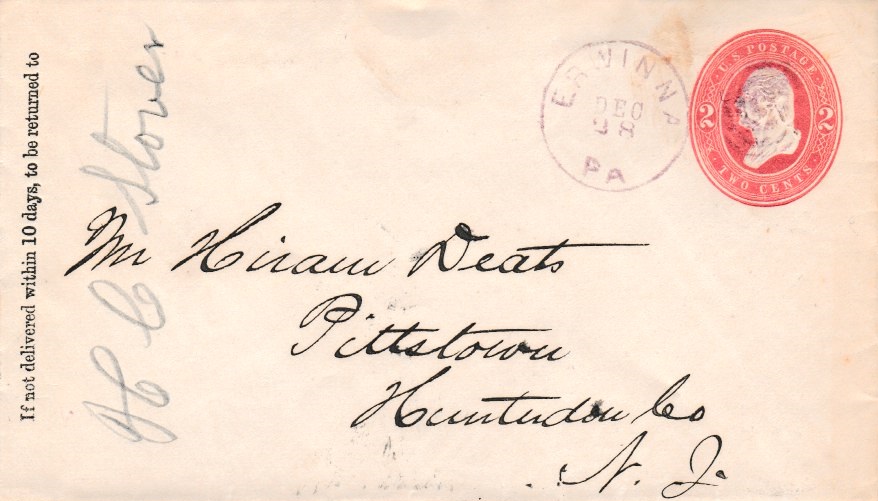 If not delivered within 10 days, to be returned to
H C Stover
ERWINNA
DEC
28
PA
U.S. POSTAGE
2 2
TWO CENTS
Mr Hiram Deats
Pittstown
Hunterdon Co
N. J.